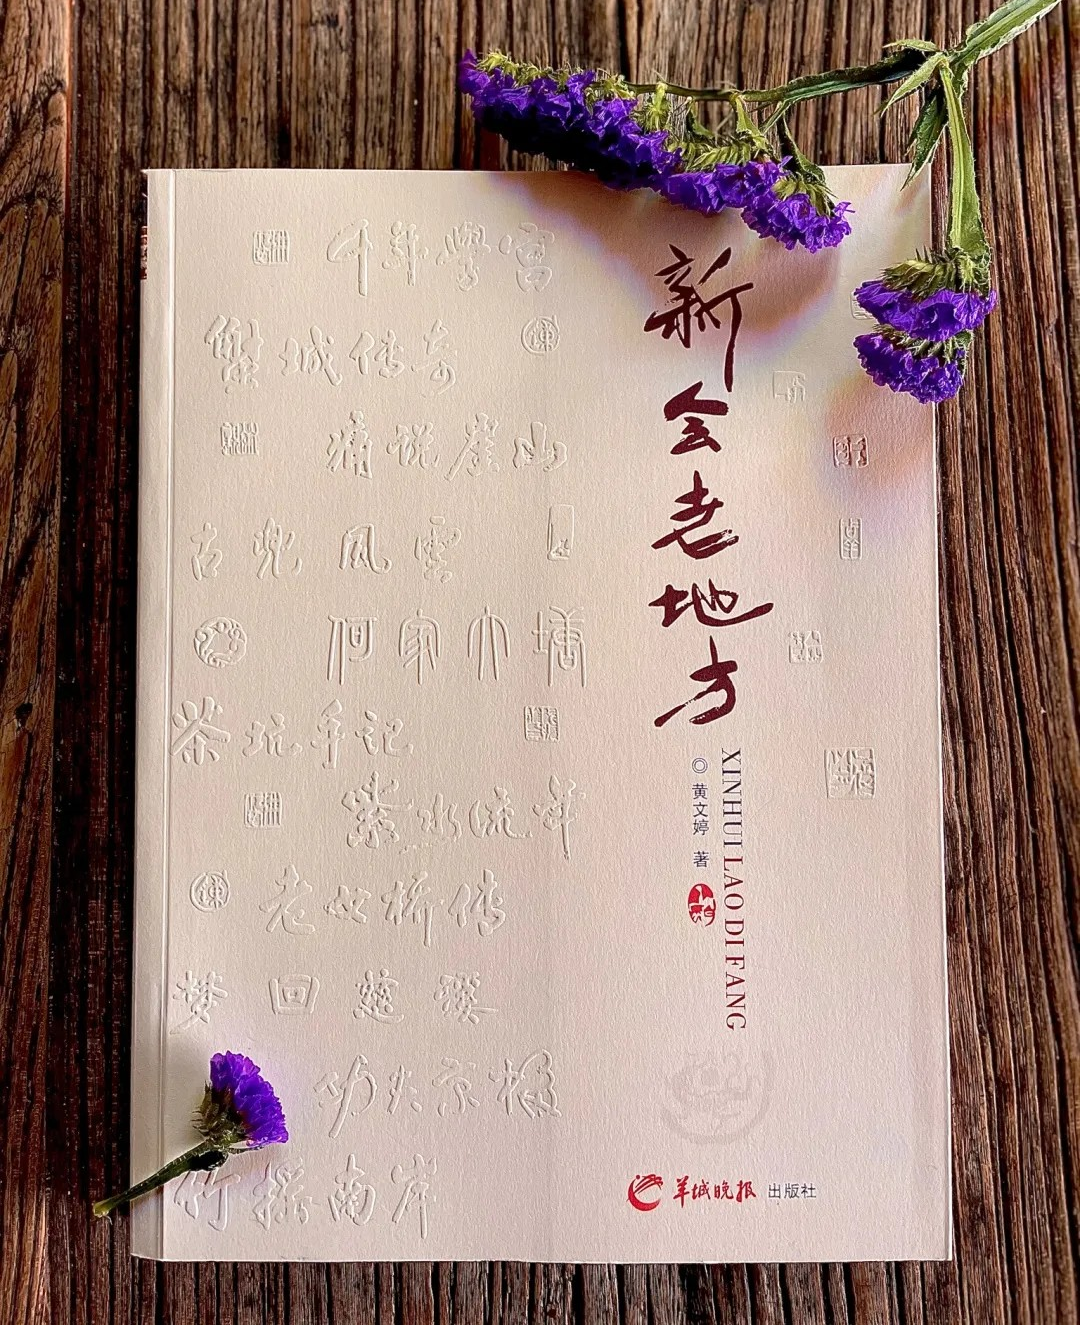 新会老地方
XINHUI LAO DI FANG
◎ 黄文婷 著
千年學宫
蟹城传奇
痛说崖山
古兜风雲
何家大塘
茶坑手记
紫水流年
老女桥传
梦回
功夫京梅
竹摇南岸
羊城晚报 出版社